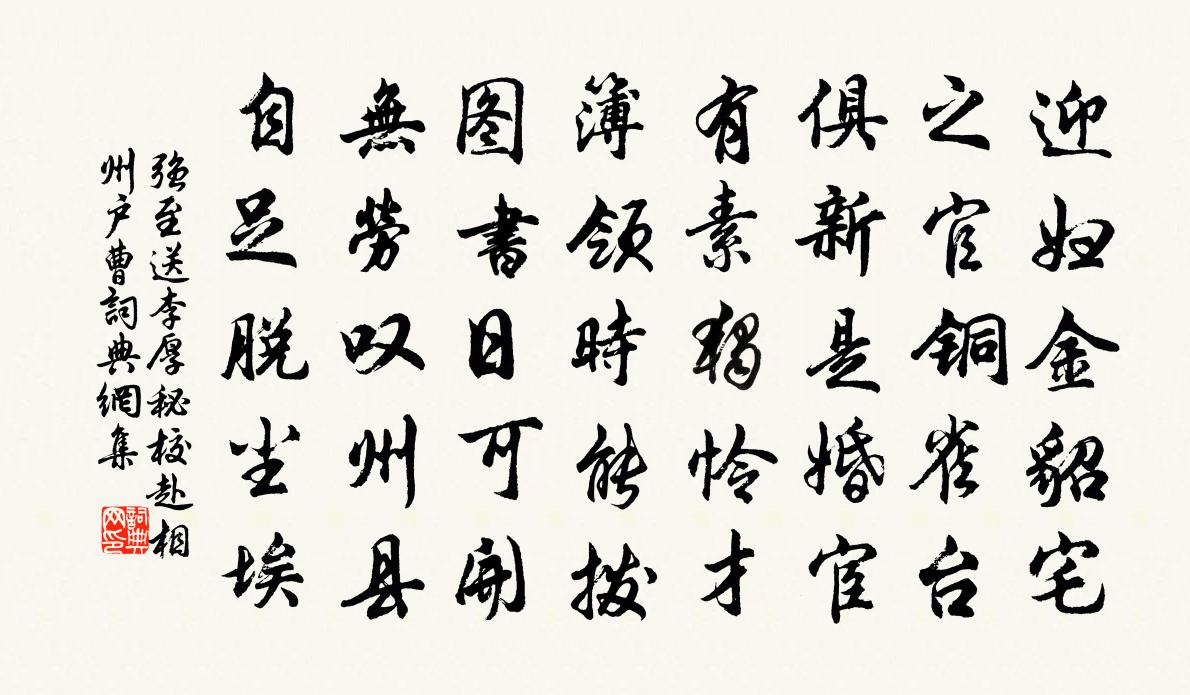 迎妇金貂宅
之官铜雀台
俱新是婚宦
有素独怜才
簿领時能拨
图書日可開
無勞叹州县
自足脱尘埃
强至送李厚秘校赴相
州户曹詞典網集
詞典
网印